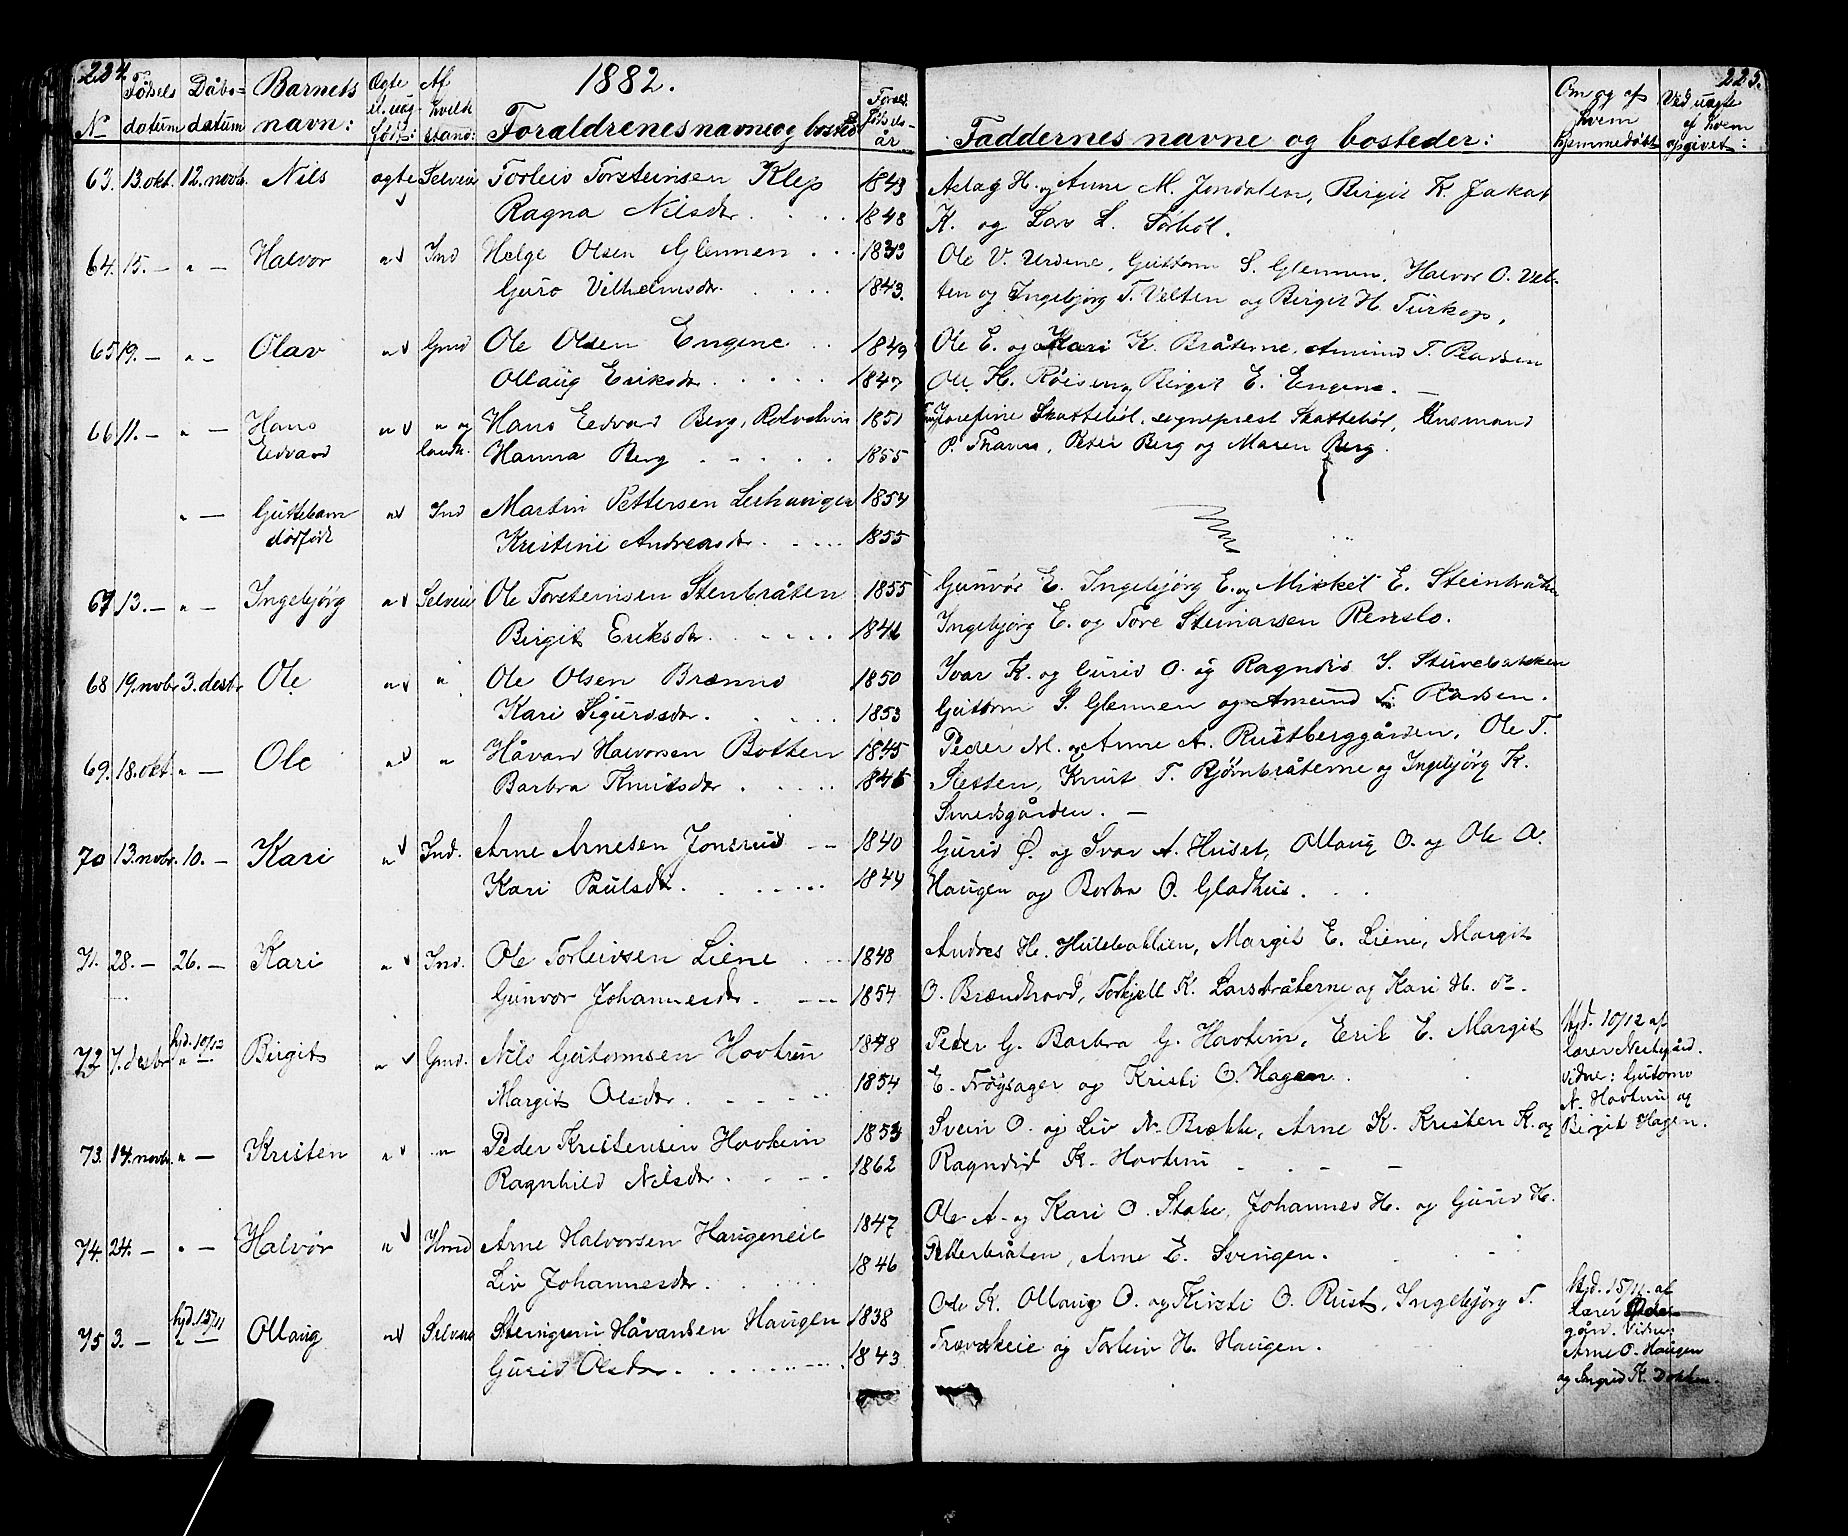 224
1882.
225.
No
Fødsels datum
Dåbs- datum
Barnets navn:
Ægte el. uæg. født:
Af hvilke stand:
Foraldrenes navne og bosted
Foræl. fødsels- år
Faddernes navne og bosteder:
Om og af hvem hjemmedøbt
Ved uægte af hvem opgivet:
63. 13. okt. 12. novb. Nils ægte Selveie Torleiv Torsteinsen Klep 1843 Aslag H. og Anne M. Jondalen, Birgit K. Jakob
Ragna Nilsdr. 1848 K. og Lars L. Sørbøl.
64. 15. — " — Halvor " Ind Helge Olsen Glennen 1833 Ole V. Urdene, Guttorm S. Glennen, Halvor O. Vel-
Guro Vilhelmsdr. 1843. ten og Ingebjørg T. Velten og Birgit H. Turkop.
65 19. — " — Olav " Gmd Ole Olsen Engene 1849 Ole E. og Kari K. Bråterne. Amund T.
Ollaug Eriksdr. 1847 Ole H. Birgit E. Engene. —
66 11. — " — Hans " " og Hans Edvard Berg, 1851 Josefine Skattebøl, sogneprest Skattebøl, Lensmand
Edvard landh. Hanna Berg 1855 P. Thavne, Peter Berg og Maren Berg.
" — Guttebarn " Ind Martin Pettersen 1854
dødfødt Kristine Andreasdr. 1855
67 13. — " — Ingebjørg " Selveie Ole Torsteinsen Stenbråten 1855 Gunvør E. Ingebjørg E. og Mikkel E. Steinbråten
Birgit Eriksdr. Ingebjørg E. og Tore Steinarsen Renslo.
68 19. novbr 3. desbr Ole " " Ole Olsen Brænno 1850 Ivar K. og Gurid O. og Ragndis S. Stuvebakken
Kari Sigurdsdr. 1853 Guttorm S. Glennen og Amund T.
69. 18. okt. " — Ole " " Håvard Halvorsen Botten 1845 Peder M. og Anne A. Rustberggården, Ole T.
Barbra Knutsdr Sletten, Knut T. Bjørnbråterne og Ingebjørg K.
Smedsgården. —
70 13. novbr. 10. — Kari " Ind. Arne Arnesen Jonsrud 1840 Gurid Ø. og Ivar A. Huset, Ollaug O. og Ole O.
Kari Paulsdr. 1844 Haugen og Barbra O. Gladhus.
71. 28. — 26. — Kari " Ind. Ole Torleivsen Liene 1848 Andres H. Hulebakkien, Margit E. Liene, Margit
Gunvor Johannesdr. 1854 O. Brændhovd, Torkjell K. Larsbråterne og Kari H. do.
72 7. desbr hjd. 10/12 " — Birgit " Gmd. Nils Guttormsen Hovtun 1848 Peder G. Barbra G. Hovtun, Erik E. Margit Hjd. 10/12 af
lærer Nestegård.
Margit Olsdr. 1854 E. Trøysager og Kristi O. Hagen. vidne: Guttorm
N. Hovtun og
73. 14. novb. " — Kristen " " Peder Kristensen Hovtun 1853 Svein O. og Liv N. Brekke, Arne K. Kristen K. og Birgit Hagen.
Ragnhild Nilsdr. 1862 Ragndid K. Hovtun
74. 24. — " — Halvor " Hmd Arne Halvorsen Haugeneie 1847 Ole A. og Kari O. Stake, Johannes H. og Gurid H.
Liv Johannesdr. 1846 Petterbråten, Arne E. Svingen.
75 3. — hjd. 15/11 " — Ollaug " Selveie Steingrim Håvardsen Haugen 1838 Ole K. Ollaug O. og Kirsti O. Rust, Ingebjørg T. Hjd. 15/11 af
lærer
gård. Vidne:
Gurid Olsdr. 1843 Træveskeie og Torleiv H. Haugen. Arne O. Haugen
og Ingrid K. Dokken.